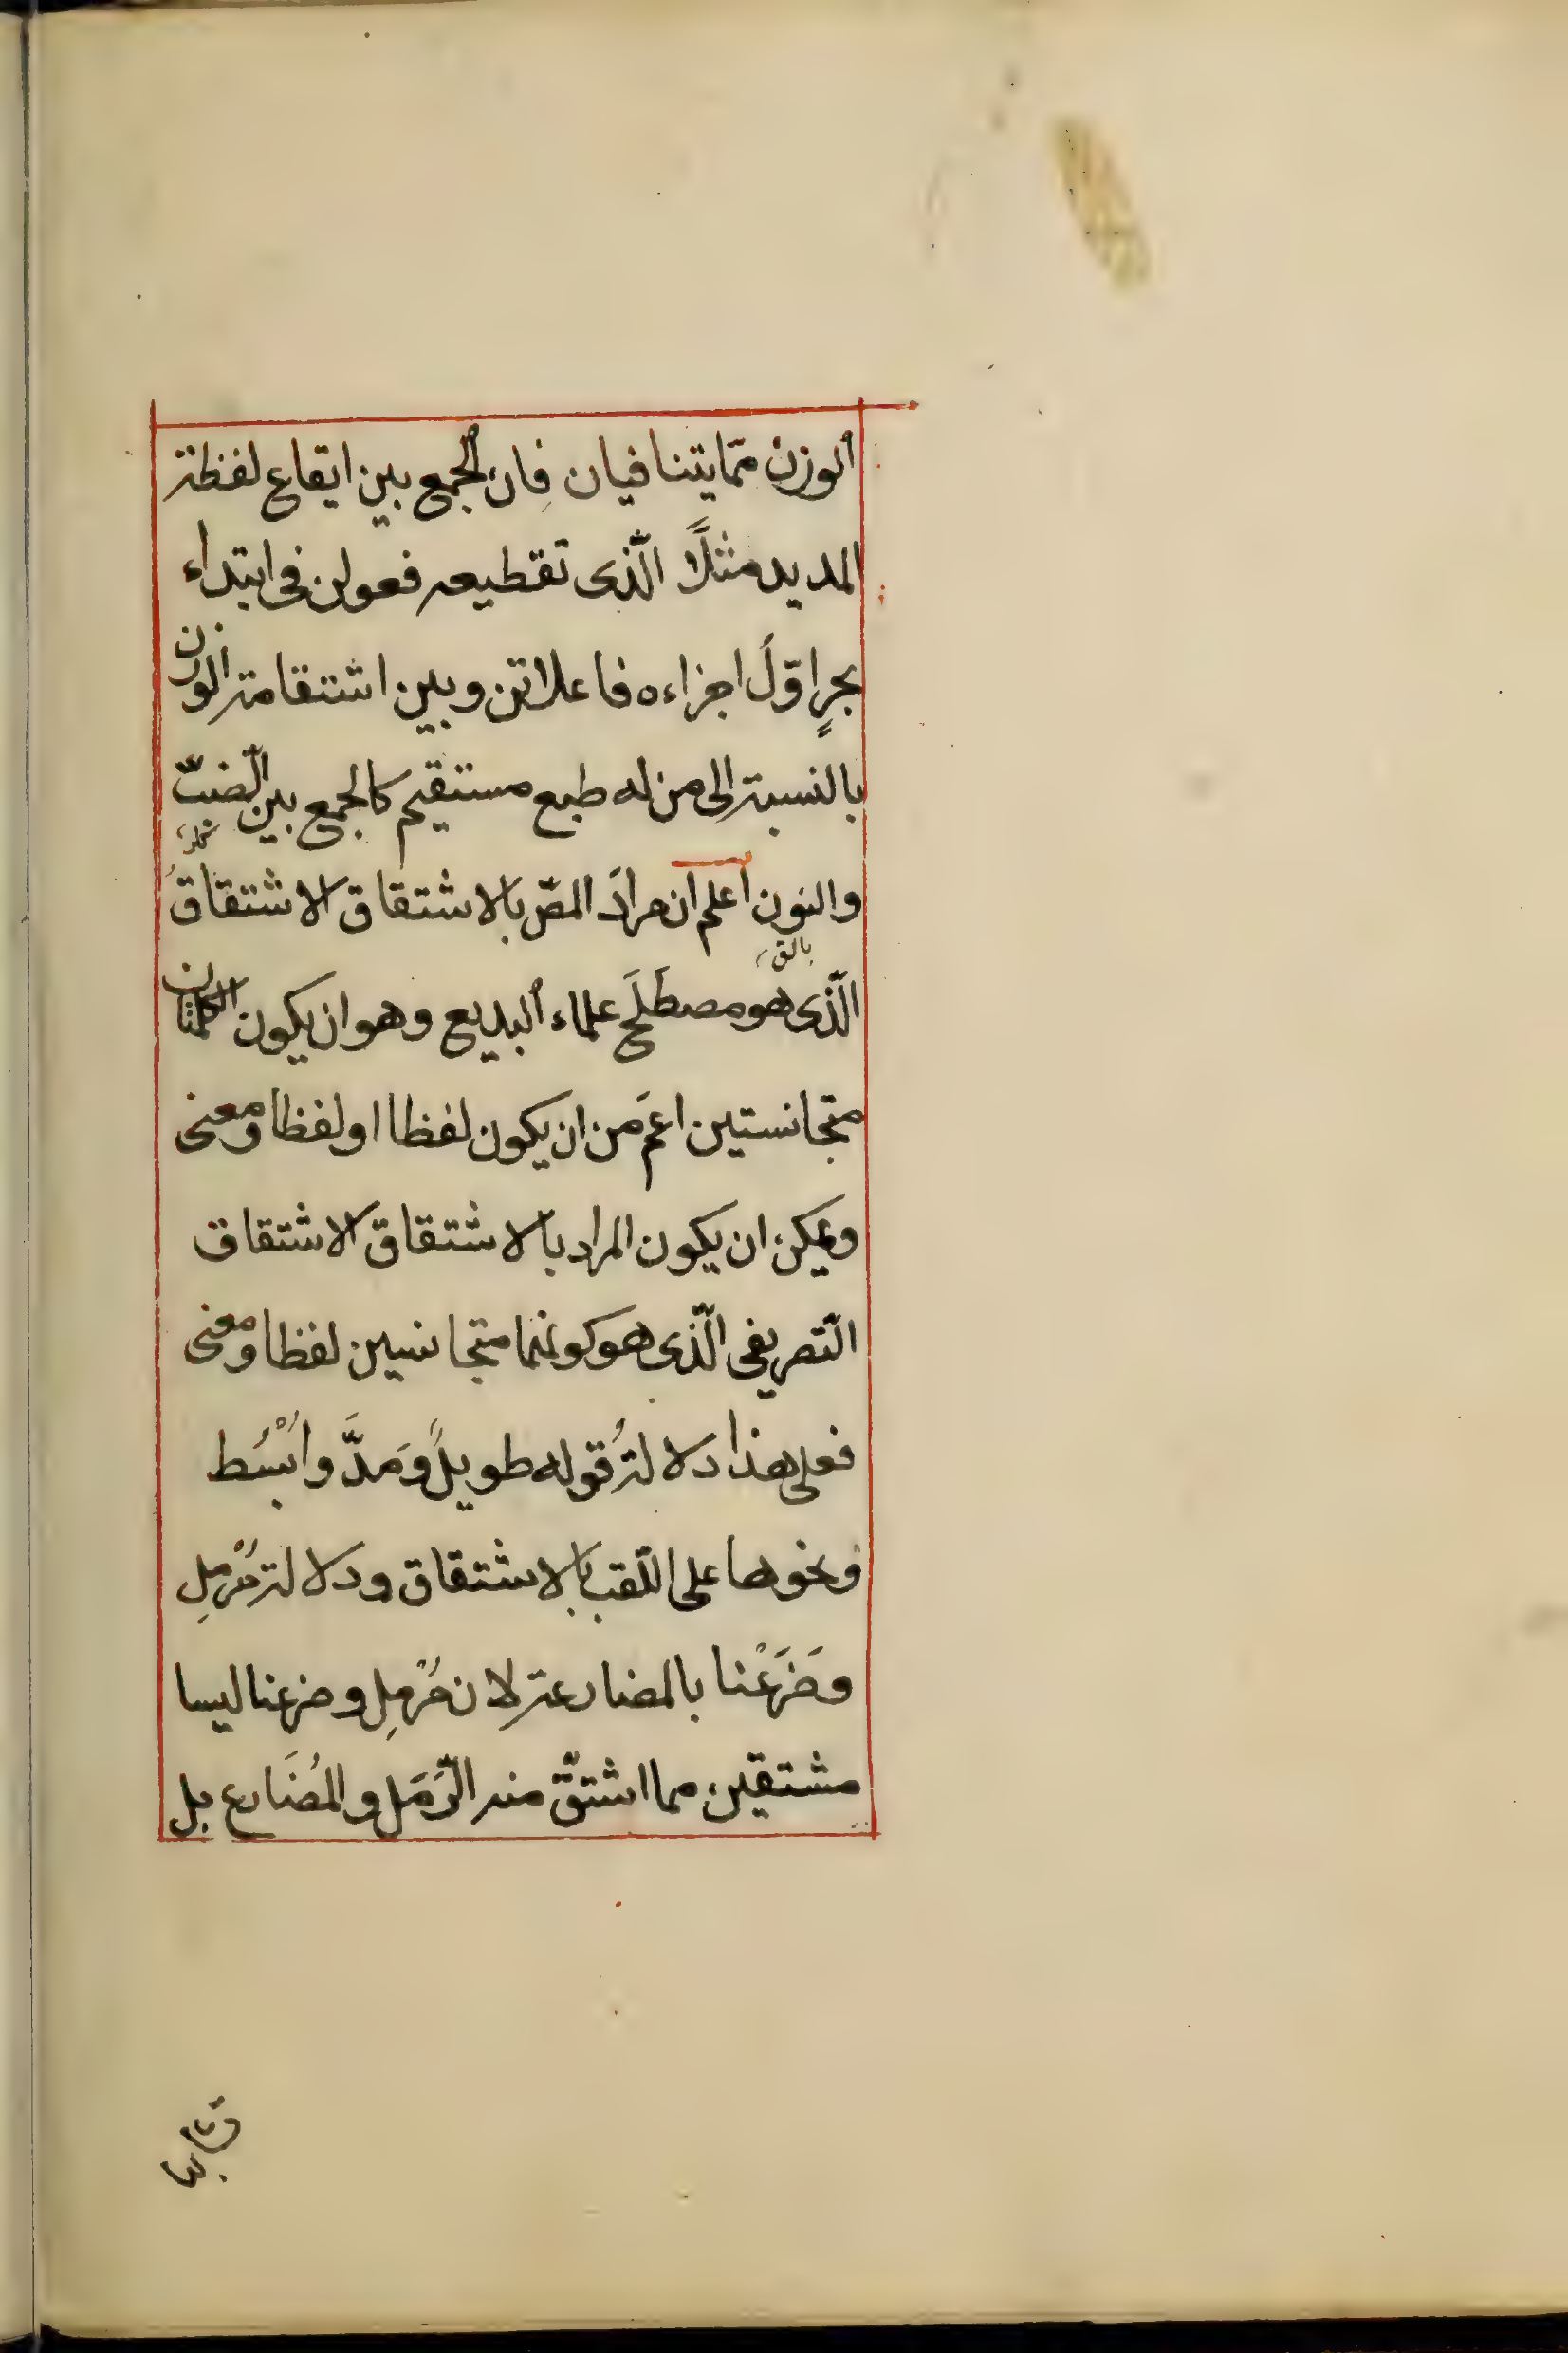 ألوزن ممّا يتنافيان فان الجمع بين ايقاع لفظة
المديد مثلاً الّذى تقطيعه فعولن فى ابتداء
بحرٍ اوّلُ اجزاءه فاعلاتن وبين اشتقامة ألوزن
بالنسبة الى من له طبع مستقيم كالجمع بين الّضبّ
والنون اعلم ان مرادَ المصّ بالاشتقاق الاشتقاقُ
الّذى هو مصطلَح علماء ألبديع وهو ان يكون الكلمتان
متجانستين اعَم من ان يكون لفظا او لفظا ومعنى
ويمكن ان يكون المراد بالاشتقاق الاشتقاق
الّتصريفى الّذى هو كونهما متجانسين لفظا ومعنى
فعلى هذا دلالةُ قوله طويلٌ وَمَدَّ واُبْسُط
ونحوها على اللّقب بالاشتقاق ودلالة مُرْمِل
وَضَرَعْنا بالمضارعة لان مُرْمِل وضرعنا ليسا
مشتقين مما اشتقّ منه الّرَمَل والمُضَارع بل